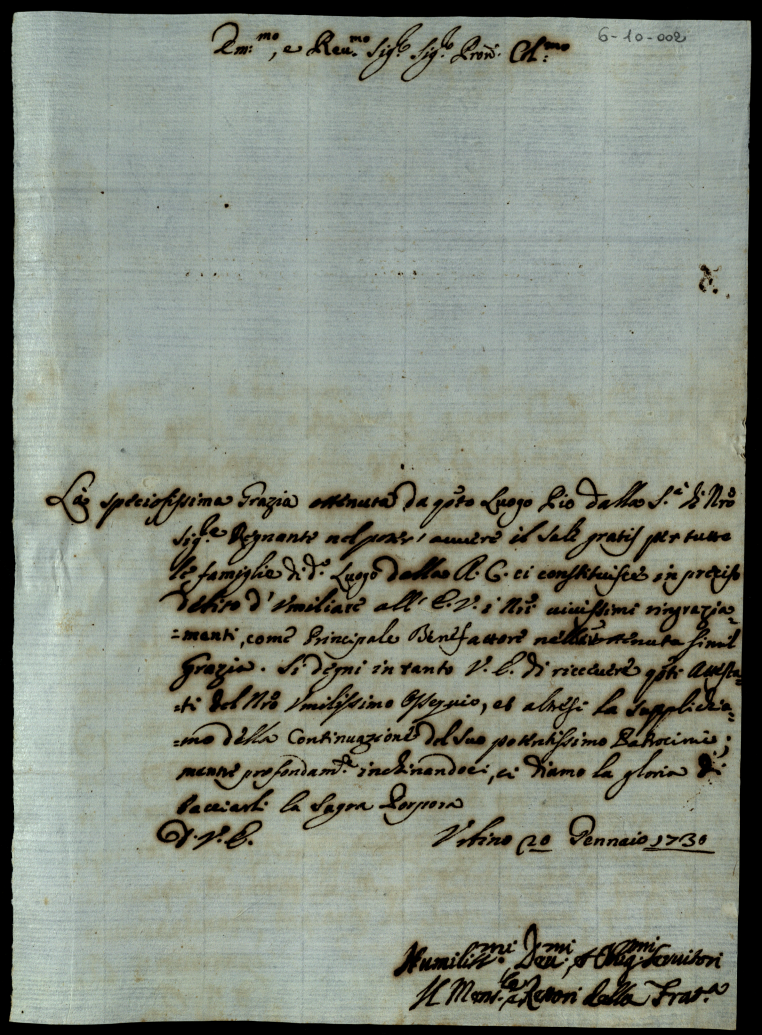 6-10-002
Em:mo, e Reu.mo Sig.e Sig.e Pron̄. Col:mo
La speciosissima Grazia ottenuta da q̄sto Luogo Pio dalla S.tà di Nr̄o
Sig.e Regnante nel poter' auuere il Sale gratis per tutte
le famiglie di d.o Luogo dalla R. C. ci constituisce in preciso
debito d'Vmiliare all'E. V. i Nr̄i viuissimi ringrazia=
=menti, come Principale Benefattore nell'ottenuta simil
Grazia. Si degni in tanto V. E. di riceuere q̄sti Attesta=
=ti del Nr̄o Vmilissimo Ossequio, et altresi la supplichia=
=mo della Continuazione del suo potentissimo Patrocinio;
mentre profondam.te inchinandoci, ci diamo la gloria di
bacciarli la Sagra Porpora
D. V. E. Vrbino 20 Gennaio 1730
Humiliss.mi Deu.mi, et Oblig.mi Seruitori
Rettori della Frat.a